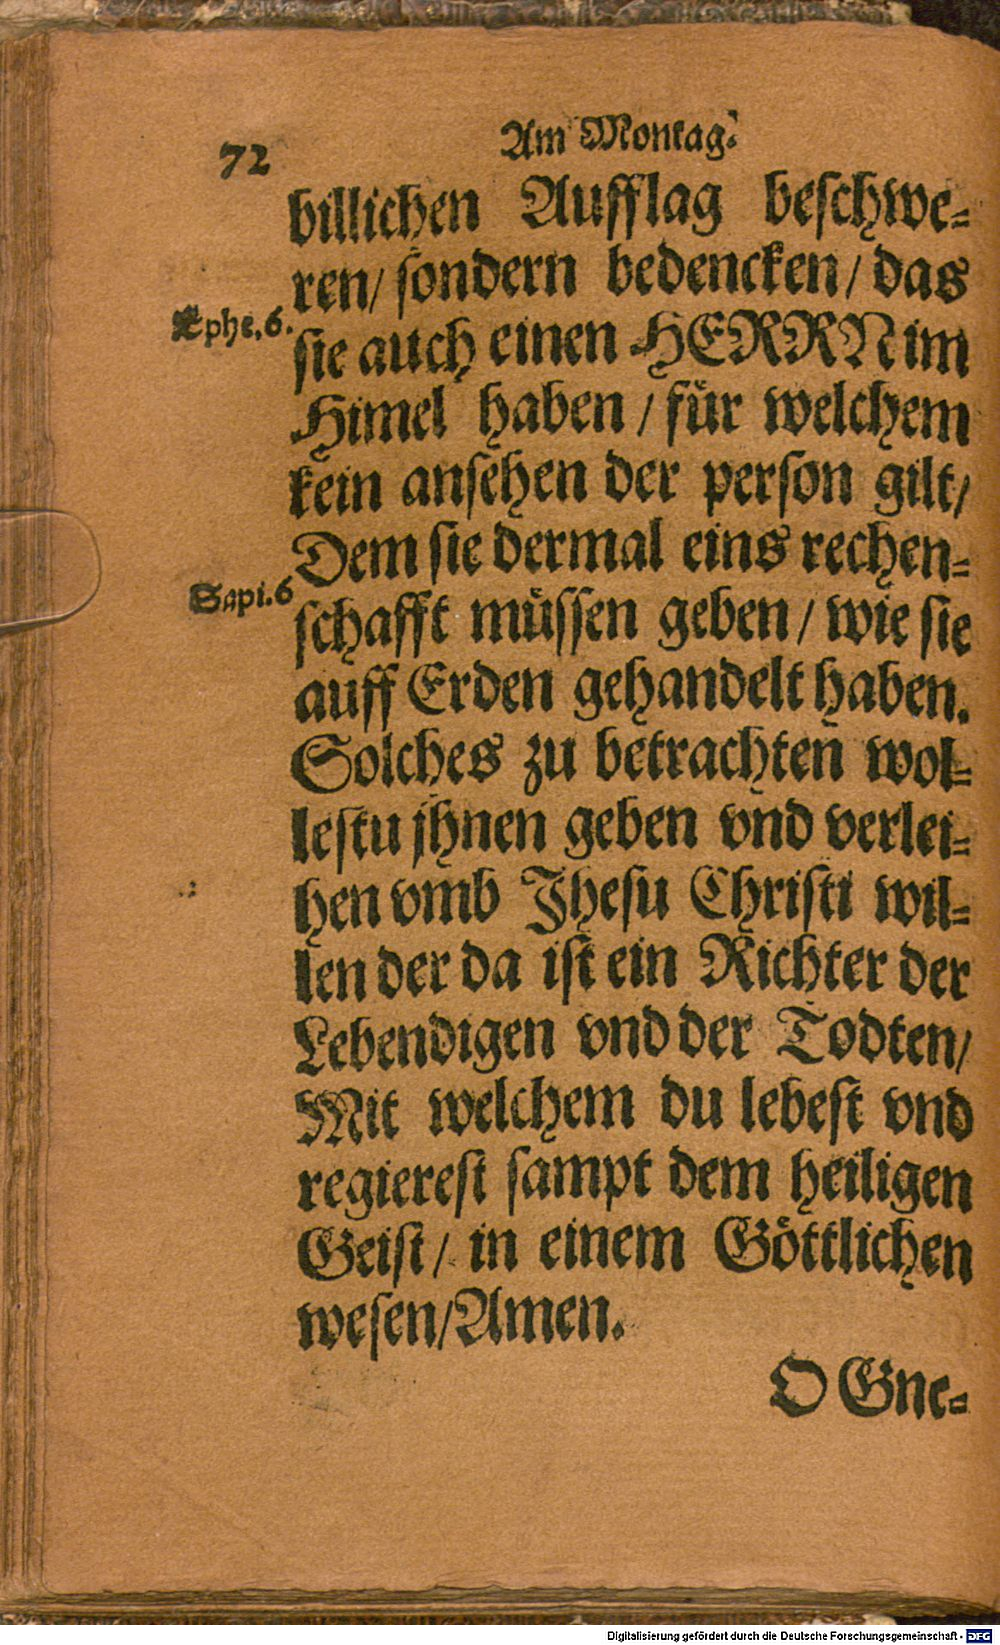 72
Am Montag.
billichen Aufflag beschwe-
ren/ sondern bedencken/ das
Ephe. 6.
sie auch einen HERRN im
Himel haben / für welchem
kein ansehen der person gilt/
Dem sie dermal eins rechen-
Sapi. 6
schafft müssen geben / wie sie
auff Erden gehandelt haben.
Solches zu betrachten wol-
lestu jhnen geben vnd verlei-
hen vmb Jhesu Christi wil-
len der da ist ein Richter der
Lebendigen vnd der Todten/
Mit welchem du lebest vnd
regierest sampt dem heiligen
Geist/ in einem Göttlichen
wesen/ Amen.
O Gne-
Digitalisierung gefördert durch die Deutsche Forschungsgemeinschaft - DFG